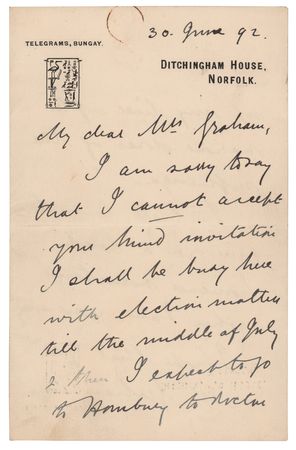 30. June 92.
TELEGRAMS, BUNGAY.
DITCHINGHAM HOUSE,
NORFOLK.
My dear Mrs Graham,
I am sorry to say
that I cannot accept
your kind invitation
I shall be busy here
with election matters
till the middle of July
& then I expect to go
to Homburg to doctor